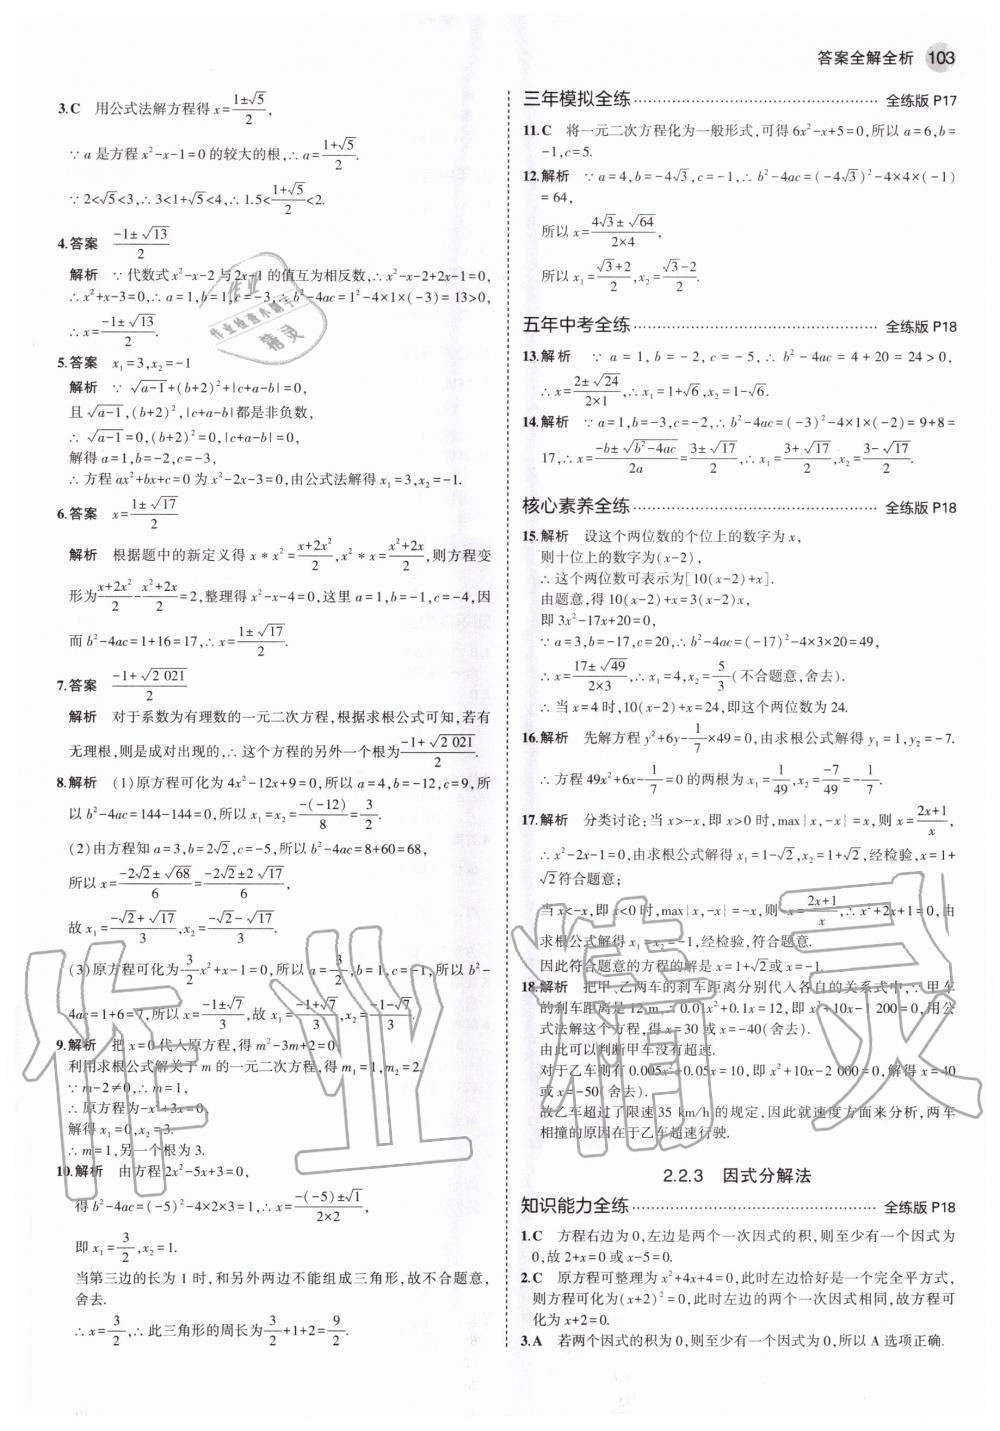 答案全解全析 103
3.C 用公式法解方程得 x=(1±√5)/2,
∵a 是方程 x²-x-1=0 的较大的根,∴a=(1+√5)/2.
∵2<√5<3,∴3<1+√5<4,∴1.5<(1+√5)/2<2.
4.答案 (-1±√13)/2
解析 ∵代数式 x²-x-2 与 2x-1 的值互为相反数,∴x²-x-2+2x-1=0,
∴x²+x-3=0,∴a=1,b=1,c=-3,∴b²-4ac=1²-4×1×(-3)=13>0,
∴x=(-1±√13)/2.
5.答案 x₁=3,x₂=-1
解析 ∵√(a-1)+(b+2)²+|c+a-b|=0,
且√(a-1),(b+2)²,|c+a-b|都是非负数,
∴√(a-1)=0,(b+2)²=0,|c+a-b|=0,
解得 a=1,b=-2,c=-3,
∴方程 ax²+bx+c=0 为 x²-2x-3=0,由公式法解得 x₁=3,x₂=-1.
6.答案 x=(1±√17)/2
解析 根据题中的新定义得 x*x²=(x+2x²)/2,x²*x=(x²+2x)/2,则方程变
形为(x+2x²)/2-(x²+2x)/2=2,整理得 x²-x-4=0,这里 a=1,b=-1,c=-4,因
而 b²-4ac=1+16=17,∴x=(1±√17)/2.
7.答案 (-1+√2 021)/2
解析 对于系数为有理数的一元二次方程,根据求根公式可知,若有
无理根,则是成对出现的,∴这个方程的另外一个根为(-1+√2 021)/2.
8.解析 (1)原方程可化为 4x²-12x+9=0,所以 a=4,b=-12,c=9,所
以 b²-4ac=144-144=0,所以 x₁=x₂=-(-12)/8=3/2.
(2)由方程知 a=3,b=2√2,c=-5,所以 b²-4ac=8+60=68,
所以 x=(-2√2±√68)/6=(-2√2±2√17)/6,
故 x₁=(-√2+√17)/3,x₂=(-√2-√17)/3.
(3)原方程可化为(3/2)x²+x-1=0,所以 a=3/2,b=1,c=-1,所以 b²-
4ac=1+6=7,所以 x=(-1±√7)/3,故 x₁=(-1+√7)/3,x₂=(-1-√7)/3.
9.解析 把 x=0 代入原方程,得 m²-3m+2=0.
利用求根公式解关于 m 的一元二次方程,得 m₁=1,m₂=2.
∵m-2≠0,∴m=1,
∴原方程为-x²+3x=0,
解得 x₁=0,x₂=3.
∴m=1,另一个根为 3.
10.解析 由方程 2x²-5x+3=0,
得 b²-4ac=(-5)²-4×2×3=1,∴x=(-(-5)±√1)/(2×2),
即 x₁=3/2,x₂=1.
当第三边的长为 1 时,和另外两边不能组成三角形,故不合题意,
舍去.
∴x=3/2,∴此三角形的周长为3/2+1+2=9/2.
三年模拟全练 全练版 P17
11.C 将一元二次方程化为一般形式,可得 6x²-x+5=0,所以 a=6,b=
-1,c=5.
12.解析 ∵a=4,b=-4√3,c=-1,∴b²-4ac=(-4√3)²-4×4×(-1)
=64,
所以 x=(4√3±√64)/(2×4),
所以 x₁=(√3+2)/2,x₂=(√3-2)/2.
五年中考全练 全练版 P18
13.解析 ∵a=1,b=-2,c=-5,∴b²-4ac=4+20=24>0,
∴x=(2±√24)/(2×1),∴x₁=1+√6,x₂=1-√6.
14.解析 ∵a=1,b=-3,c=-2,∴b²-4ac=(-3)²-4×1×(-2)=9+8=
17,∴x=(-b±√(b²-4ac))/2a=(3±√17)/2,∴x₁=(3+√17)/2,x₂=(3-√17)/2.
核心素养全练 全练版 P18
15.解析 设这个两位数的个位上的数字为 x,
则十位上的数字为(x-2),
∴这个两位数可表示为[10(x-2)+x].
由题意,得 10(x-2)+x=3(x-2)x,
即 3x²-17x+20=0,
∵a=3,b=-17,c=20,∴b²-4ac=(-17)²-4×3×20=49,
∴x=(17±√49)/(2×3),∴x₁=4,x₂=5/3(不合题意,舍去).
∴当 x=4 时,10(x-2)+x=24,即这个两位数为 24.
16.解析 先解方程 y²+6y-1/7×49=0,由求根公式解得 y₁=1,y₂=-7.
∴方程 49x²+6x-1/7=0 的两根为 x₁=1/49,x₂=-7/49=-1/7.
17.解析 分类讨论:当 x>-x,即 x>0 时,max{x,-x}=x,则 x=(2x+1)/x,
∴x²-2x-1=0,由求根公式解得 x₁=1-√2,x₂=1+√2,经检验,x=1+
√2符合题意;
当 x<-x,即 x<0 时,max{x,-x}=-x,则-x=(2x+1)/x,∴x²+2x+1=0,由
求根公式解得 x₁=x₂=-1,经检验,符合题意.
因此符合题意的方程的解是 x=1+√2或 x=-1.
18.解析 把甲、乙两车的刹车距离分别代入各自的关系式中,∵甲车
的刹车距离是 12 m,∴0.01x²+0.1x=12,即 x²+10x-1 200=0,用公
式法解这个方程,得 x=30 或 x=-40(舍去).
由此可以判断甲车没有超速.
对于乙车则有 0.005x²+0.05x=10,即 x²+10x-2 000=0,解得 x=40
或 x=-50(舍去).
故乙车超过了限速 35 km/h 的规定,因此就速度方面来分析,两车
相撞的原因在于乙车超速行驶.
2.2.3 因式分解法
知识能力全练 全练版 P18
1.C 方程右边为 0,左边是两个一次因式的积,则至少有一个因式
为 0,故 2+x=0 或 x-5=0.
2.C 原方程可整理为 x²+4x+4=0,此时左边恰好是一个完全平方式,
则方程可化为(x+2)²=0,此时左边的两个一次因式相同,故方程可
化为 x+2=0.
3.A 若两个因式的积为 0,则至少有一个因式为 0,所以 A 选项正确.
作业精灵